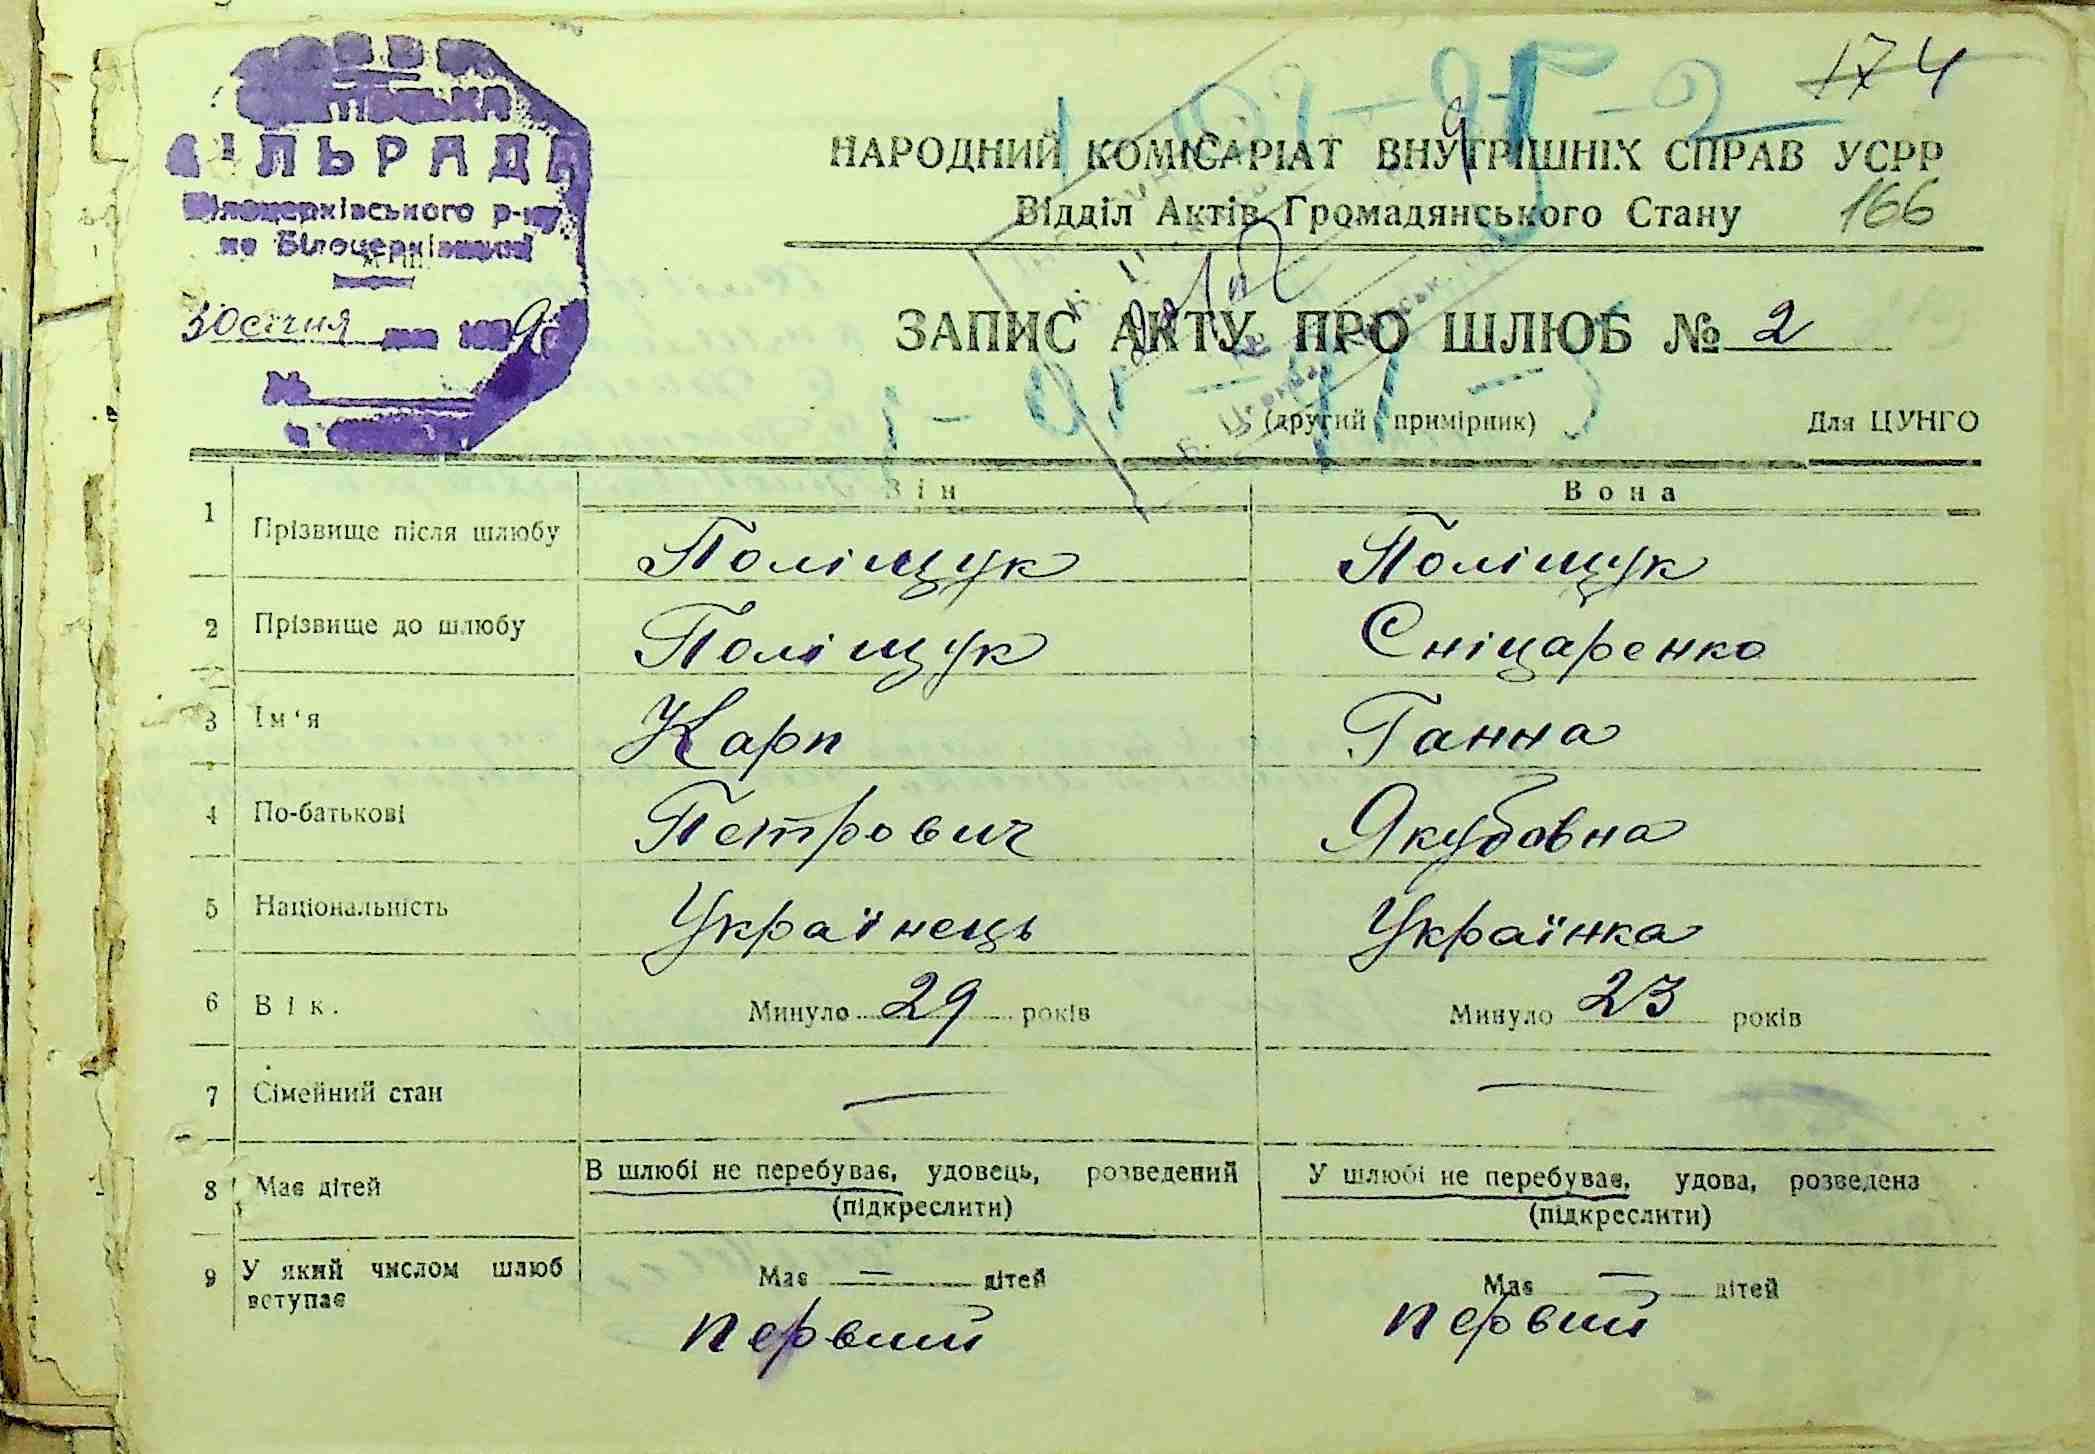 174
НАРОДНИЙ КОМІСАРІАТ ВНУТРІШНІХ СПРАВ УСРР
Відділ Актів Громадянського Стану
166
СІЛЬРАДА
Білоцерківського р-ну
на Білоцерківщині
30 січня
№
ЗАПИС АКТУ ПРО ШЛЮБ № 2
(другий примірник) Для ЦУНГО
Він Вона
1 Прізвище після шлюбу Поліщук Поліщук
2 Прізвище до шлюбу Поліщук Сніцаренко
3 Ім'я Карп Ганна
4 По-батькові Петрович Якубовна
5 Національність Українець Українка
6 Вік. Минуло 29 років Минуло 23 років
7 Сімейний стан — —
8 Має дітей В шлюбі не перебуває, удовець, розведений У шлюбі не перебуває, удова, розведена
(підкреслити) (підкреслити)
9 У який числом шлюб Має — дітей Має — дітей
вступає первий первий